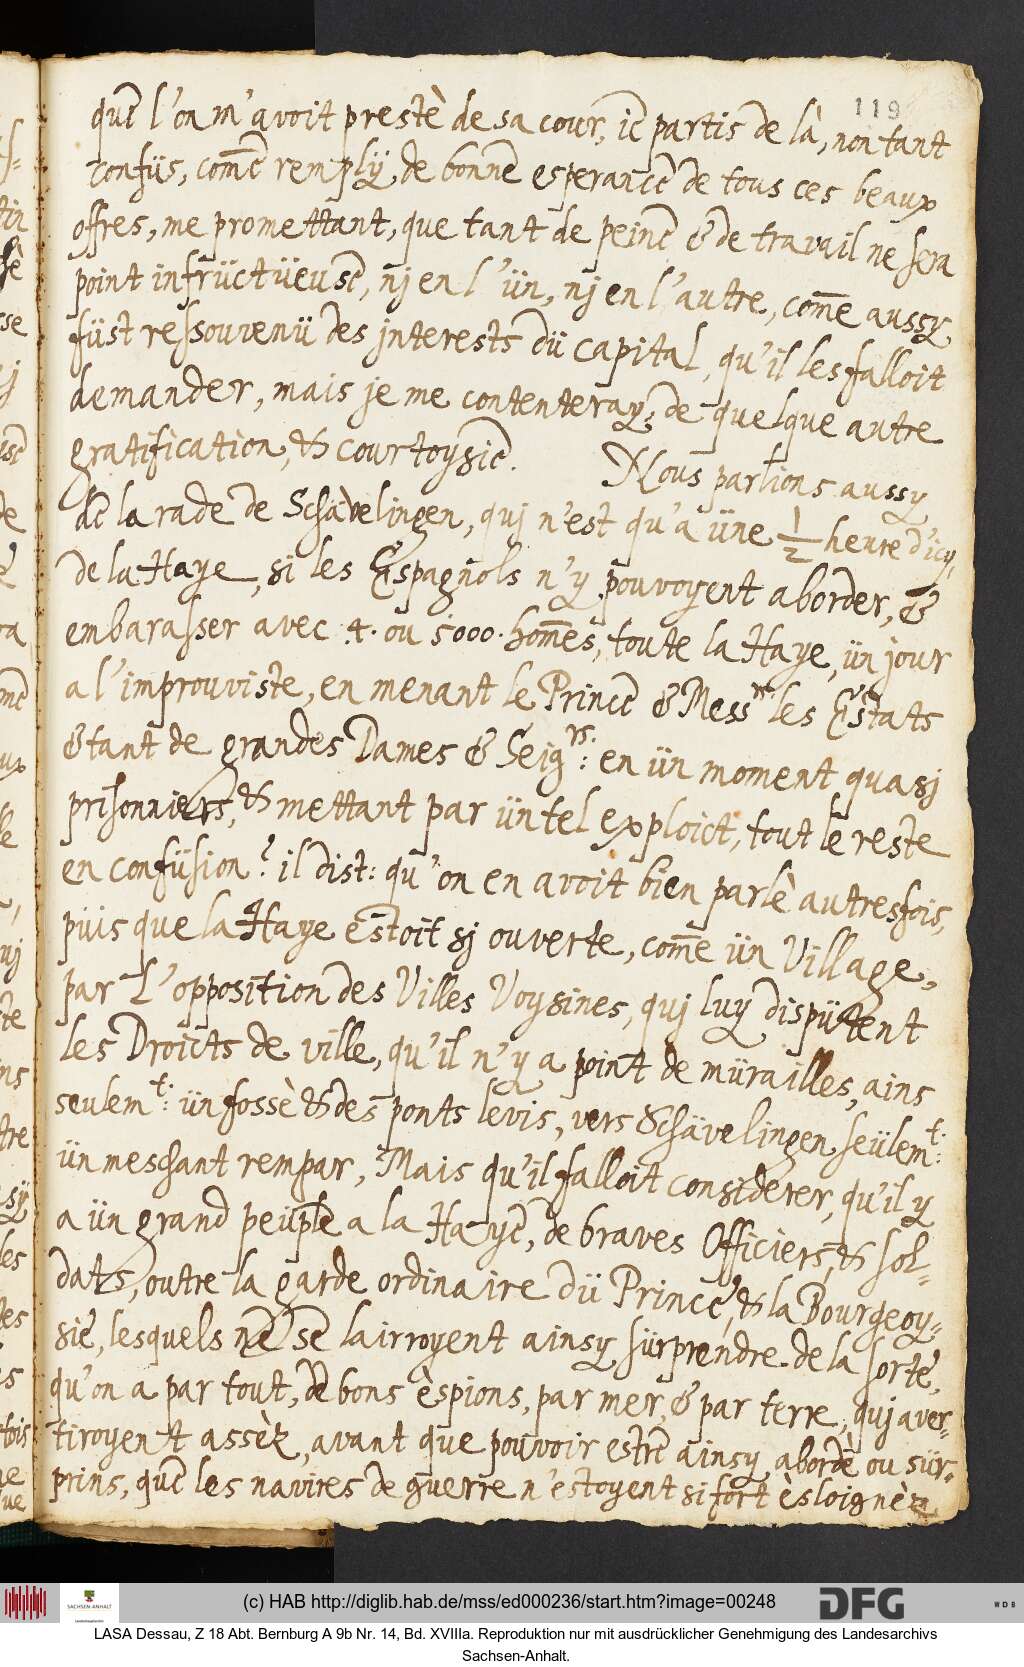 119
que l'on m'avoit prestè de sa cour, ie partis de là, non tant
confüs, com̄e remplÿ de bonne esperance de tous ces beaux
offres, me promettant, que tant de peine & de travail ne sera
point infrüctüeuse, nj en l'ün, nj en l'autre, com̄e aussy
füst ressouvenü des jnterests dü capital, qu'il les falloit
demander, mais je me contenteray, de quelque autre
gratification, & courtoysie. Nous parlions aussy
de la rade de Schävelingen, quj n'est qu'a üne ½ heure d'icy,
de la Haye, si les Espagnols n'y pouvoyent aborder, &
embarasser avec 4. ou 5000. hom̄es, toute la Haye, ün jour
a l'improuviste, en menant le Prince & Messrs. les Estats
& tant de grandes Dames & Seigrs: en ün moment quasj
prisonniers, & mettant par ün tel exploict, tout le reste
en confüsion? il dist: qu'on en avoit bien parlè autresfois,
püis que la Haye estoit sj ouverte, com̄e ün Village,
par L'opposition des Villes Voysines, quj luy dispütent
les Droicts de ville, qu'il n'y a point de mürailles, ains
seulemt: ün fossè & des ponts levis, vers Schävelingen seülemt:
ün meschant rempar, Mais qu'il falloit considerer, qu'il y
a ün grand peuple a la Haye, de braves Officiers, & sol-
dats, outre la garde ordinaire dü Prince, & la Bourgeoy-
sie, lesquels ne se lairroyent ainsy sürprendre de la sorte,
qu'on a par tout, de bons èspions, par mer, & par terre, quj aver-
tiroyent assèz, avant que pouvoir estre ainsy abordè ou sür-
prins, que les navires de guerre n'estoyent si fort èsloignèz
(c) HAB http://diglib.hab.de/mss/ed000236/start.htm?image=00248
SACHSEN-ANHALT
DFG
WDB
LASA Dessau, Z 18 Abt. Bernburg A 9b Nr. 14, Bd. XVIIIa. Reproduktion nur mit ausdrücklicher Genehmigung des Landesarchivs
Sachsen-Anhalt.